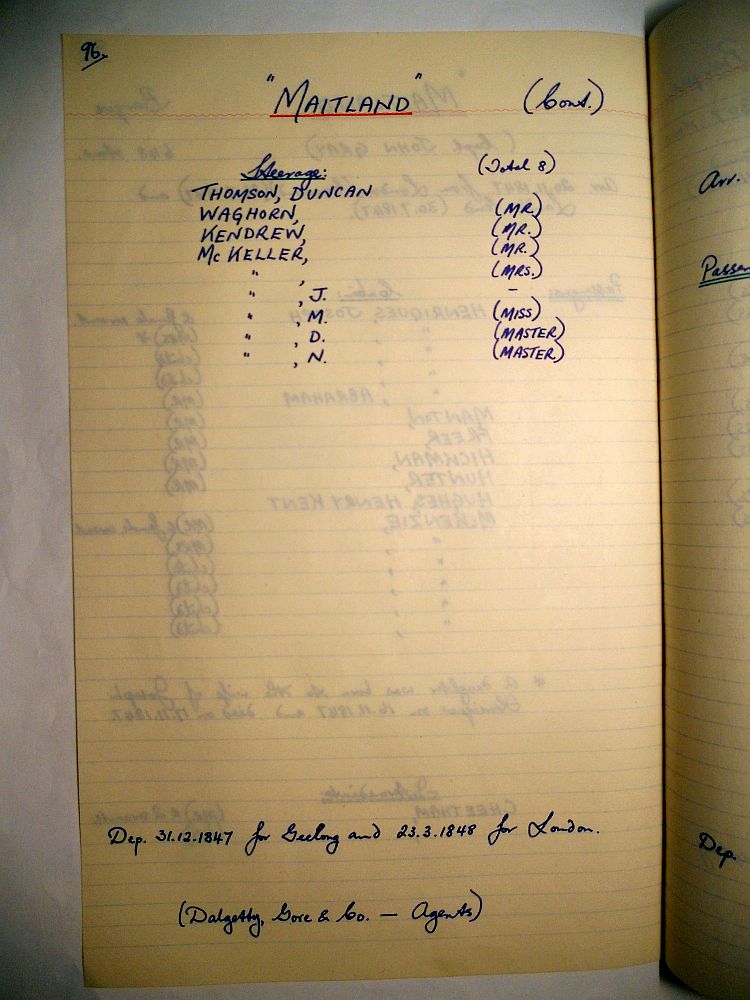 96.
"MAITLAND" (Cont.)
Steerage: (Total 8)
THOMSON, DUNCAN
WAGHORN, (MR.)
KENDREW, (MR.)
McKELLER, (MR.)
" , (MRS.)
" , J. -
" , M. (MISS)
" , D. (MASTER)
" , N. (MASTER)
Dep. 31.12.1847 for Geelong and 23.3.1848 for London.
(Dalgetty, Gore & Co. — Agents)
Arr.
Passen
Dep.